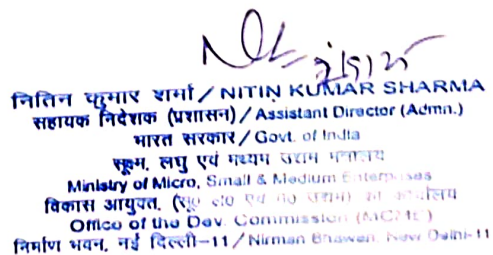 नितिन कुमार शर्मा / NITIN KUMAR SHARMA
सहायक निदेशक (प्रशासन) / Assistant Director (Admn.)
भारत सरकार / Govt. of India
सूक्ष्म, लघु एवं मध्यम उद्यम मंत्रालय
Ministry of Micro, Small & Medium Enterprises
विकास आयुक्त, (सू० ल० एवं म० उद्यम) का कार्यालय
Office of the Dev. Commission (MSME)
निर्माण भवन, नई दिल्ली-11 / Nirman Bhawan, New Delhi-11